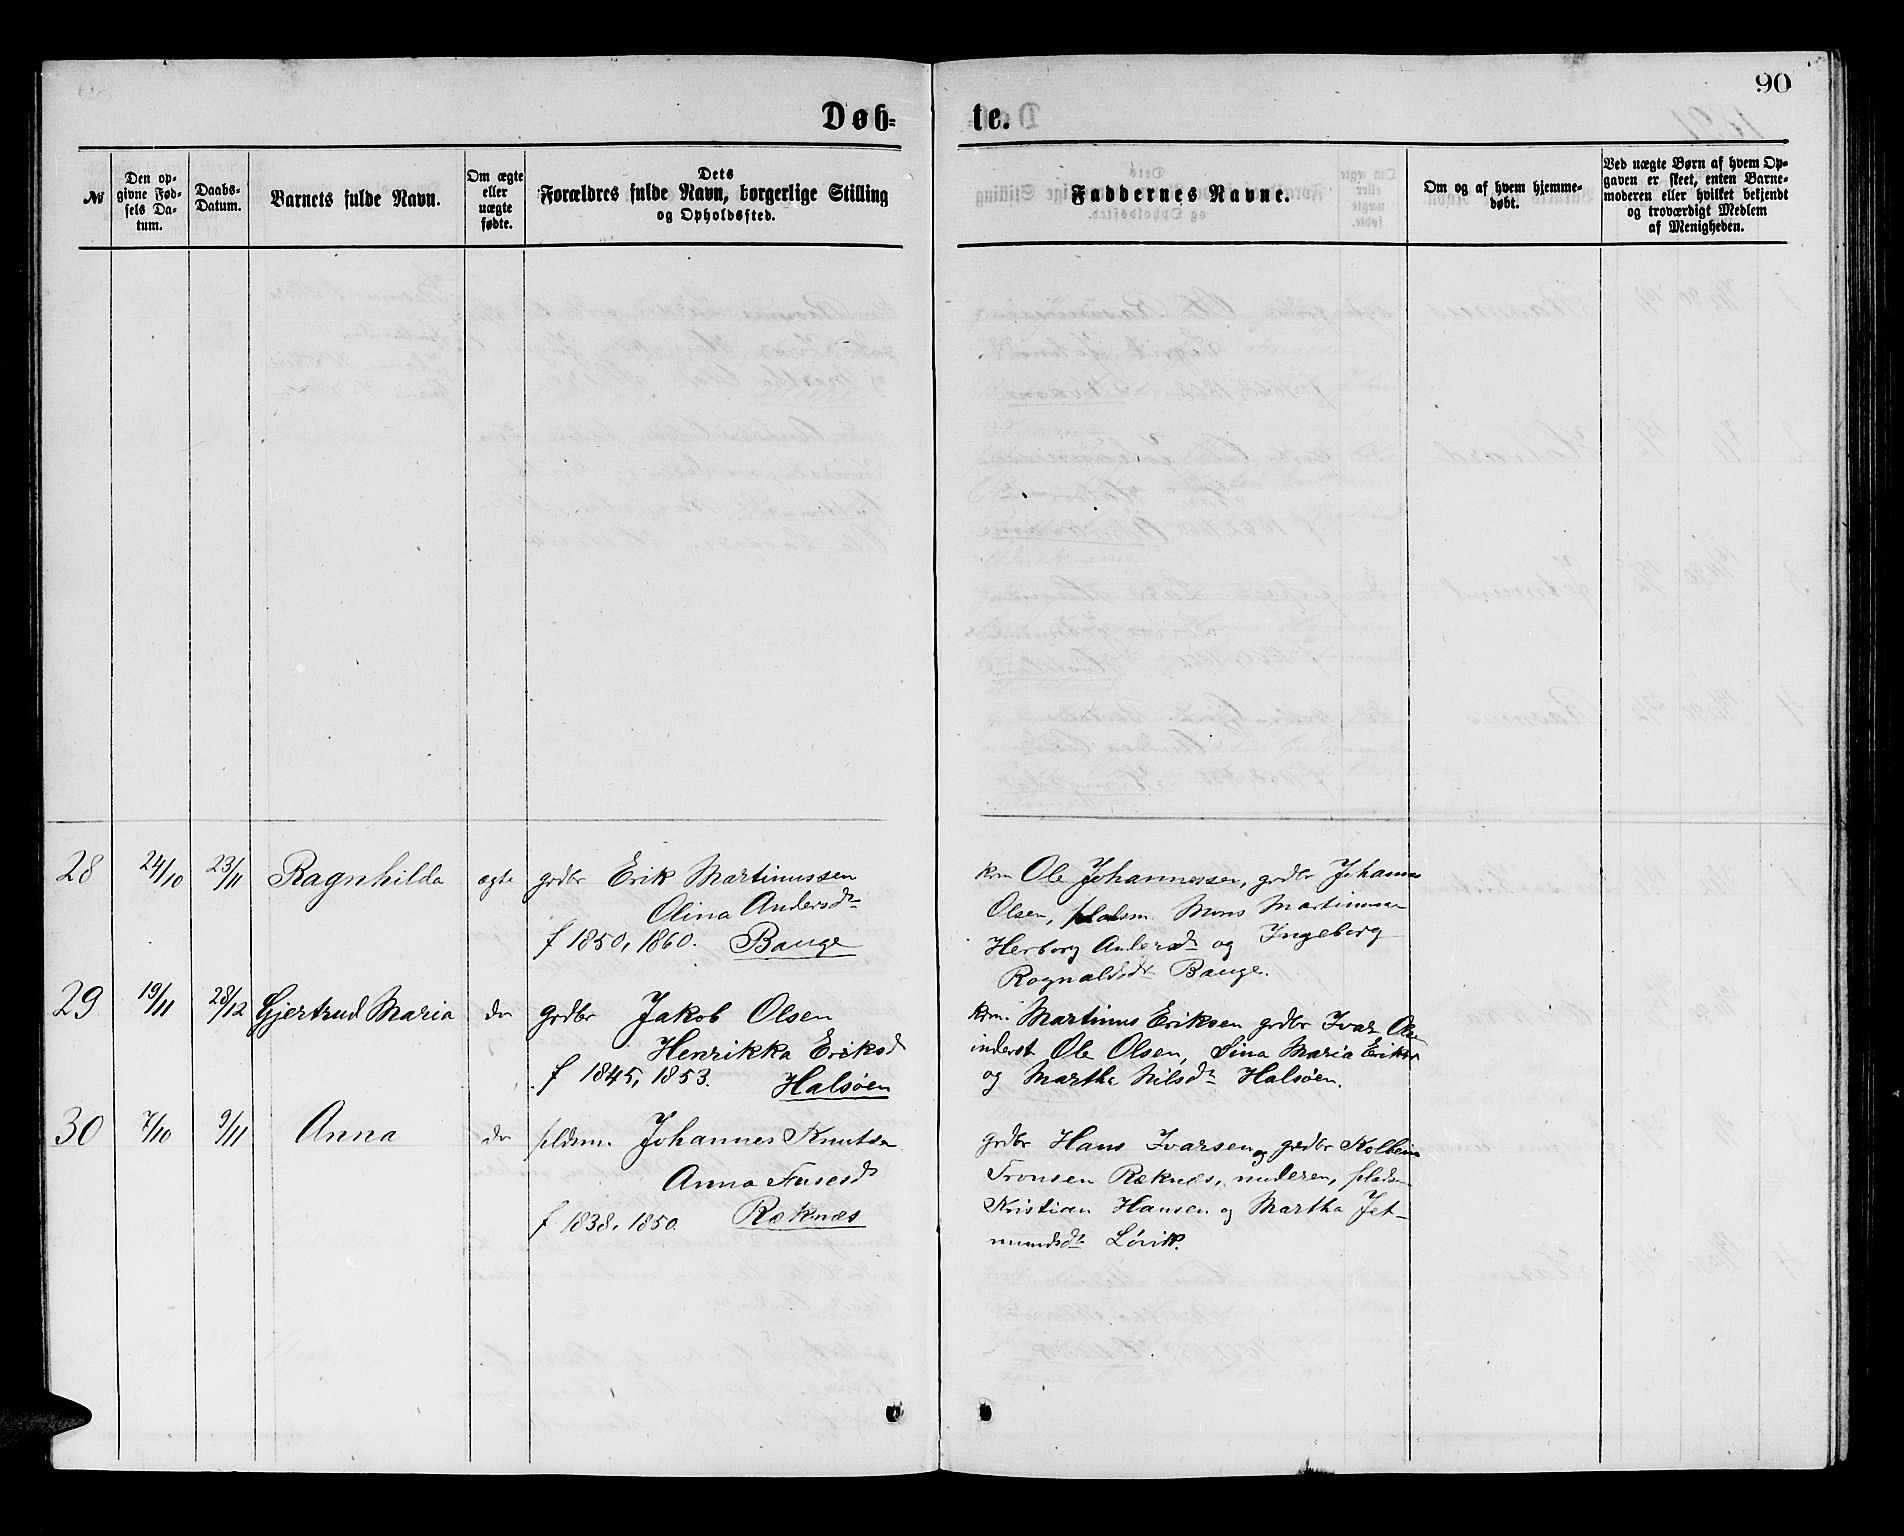 90
Døb=
te.
№
Den op-
givne Fød-
sels Da-
tum.
Daabs-
Datum.
Barnets fulde Navn.
Om ægte
eller
uægte
fødte.
Dets
Forældres fulde Navn, borgerlige Stilling
og Opholdssted.
Faddernes Navne.
Om og af hvem hjemme-
døbt.
Ved uægte Børn af hvem Op-
gaven er skeet, enten Barne-
moderen eller hvilket bekjendt
og troværdigt Medlem
af Menigheden.
28 24/10 23/11 Ragnhilda ægte grdbr Erik Martinussen
Olina Andersdtr
f 1850, 1860. Bauge
Ole Johannessen, grdbr Johannes
Olsen, pladsm. Mons Martinussen
Herborg Andersdtr og Ingeborg
Ragnaldsdtr Bauge.
29 19/11 28/12 Gjertrud Maria do grdbr Jakob Olsen
Henrikka Eriksd
f 1845, 1853. Halsøen
Martinus Eriksen grdbr Ivar Ole
inderst Ole Olsen, Sina Maria
og Martha Nilsdtr Halsøen.
30 7/10 9/11 Anna do pldsm. Johannes Knutsen
Anna
f 1838, 1850. Ræknæs
grdbr Hans Ivarsen og grdbr Kolbein
Ræknæs, pladsm
Kristian Hansen og Martha Jet-
mundsdtr Løvik.